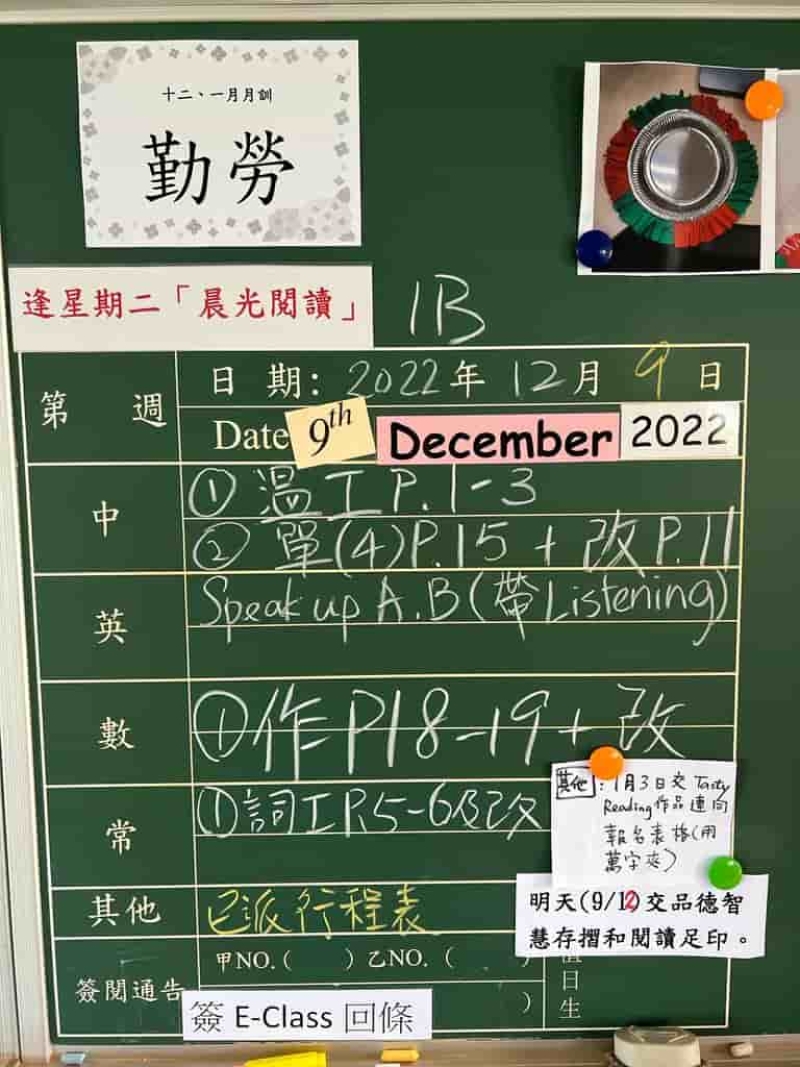 十二、一月月訓
勤勞
逢星期二「晨光閱讀」
1B
第 週
日 期: 2022年 12月 9日
Date 9th December 2022
中
① 溫工P.1-3
② 單(4)P.15 + 改P.11
英
Speak up A.B(帶Listening)
數
①作P18-19+改
常
①詞工P.5-6及改
其他:1月3日交 Tasty
Reading作品連同
報名表格(用
萬字夾)
其他
已派行程表
明天(9/12)交品德智
慧存摺和閱讀足印。
簽閱通告
甲NO.( ) 乙NO.( )
)
簽 E-Class 回條
值日生